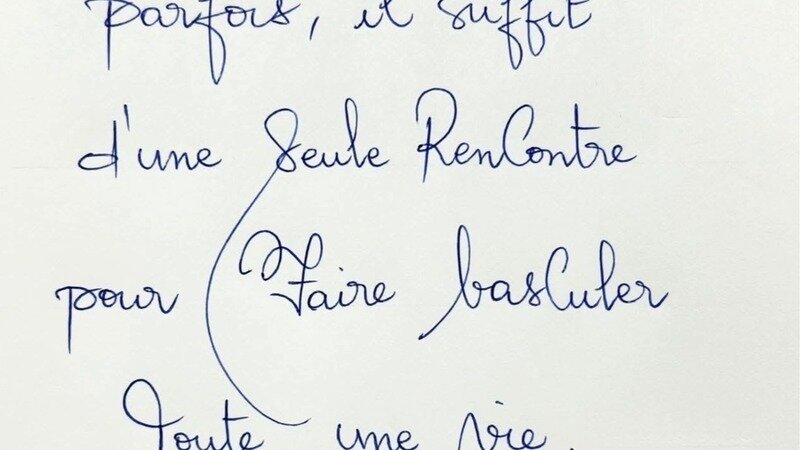 parfois, il suffit
d'une Seule RenContre
pour Faire basCuler
Toute une vie.